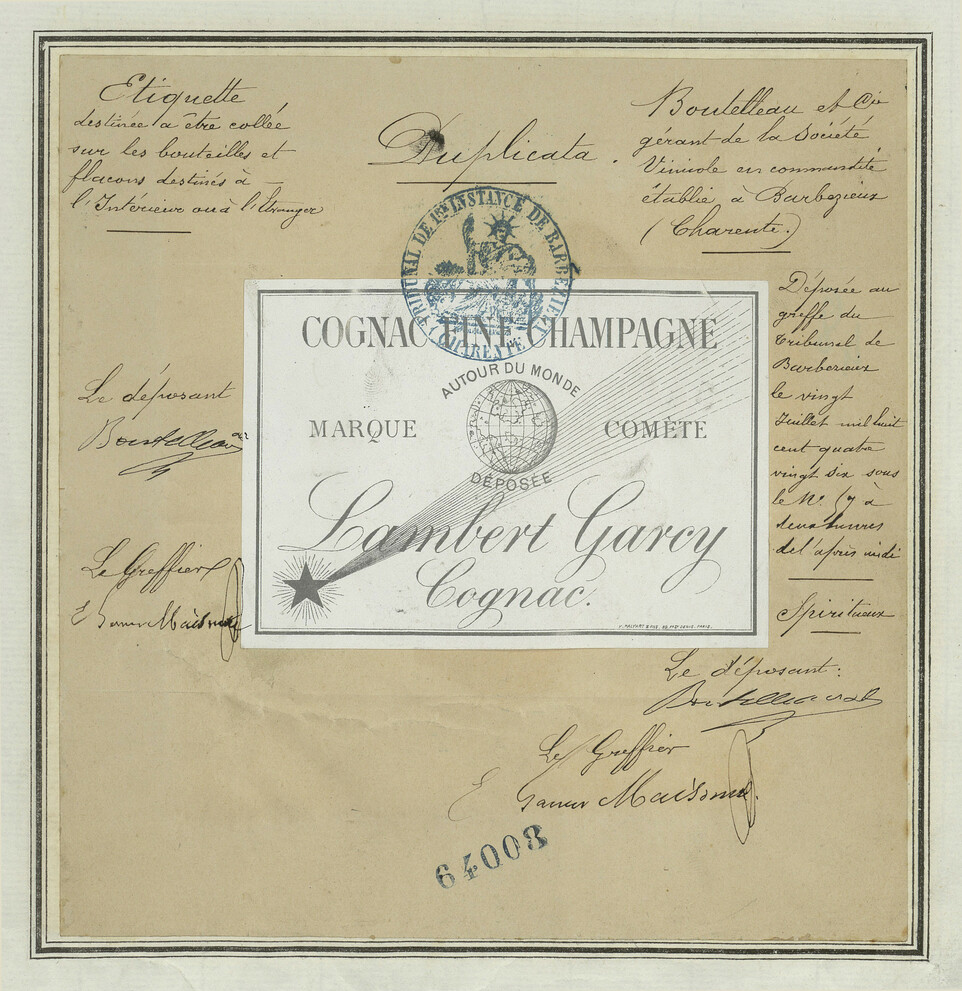 Etiquette
destinée à être collée
sur les bouteilles et
flacons destinés à
l'Intérieur ou à l'Etranger
Duplicata.
Boutelleau et Cie
gérant de la Société
Vinicole en commandite
établie à Barbezieux
(Charente.)
TRIBUNAL DE 1RE INSTANCE DE BARBEZIEUX
CHARENTE
COGNAC FINE CHAMPAGNE
AUTOUR DU MONDE
MARQUE COMÈTE
DÉPOSÉE
Lambert Garcy
Cognac.
Déposée au
greffe du
Tribunal de
Barbezieux
le vingt
Juillet mil huit
cent quatre
vingt six sous
le No. 17 à
deux heures
de l'après midi
Spiritueux
Le déposant
Boutelleau
Le Greffier
Le déposant:
Boutelleau
Le Greffier
64008